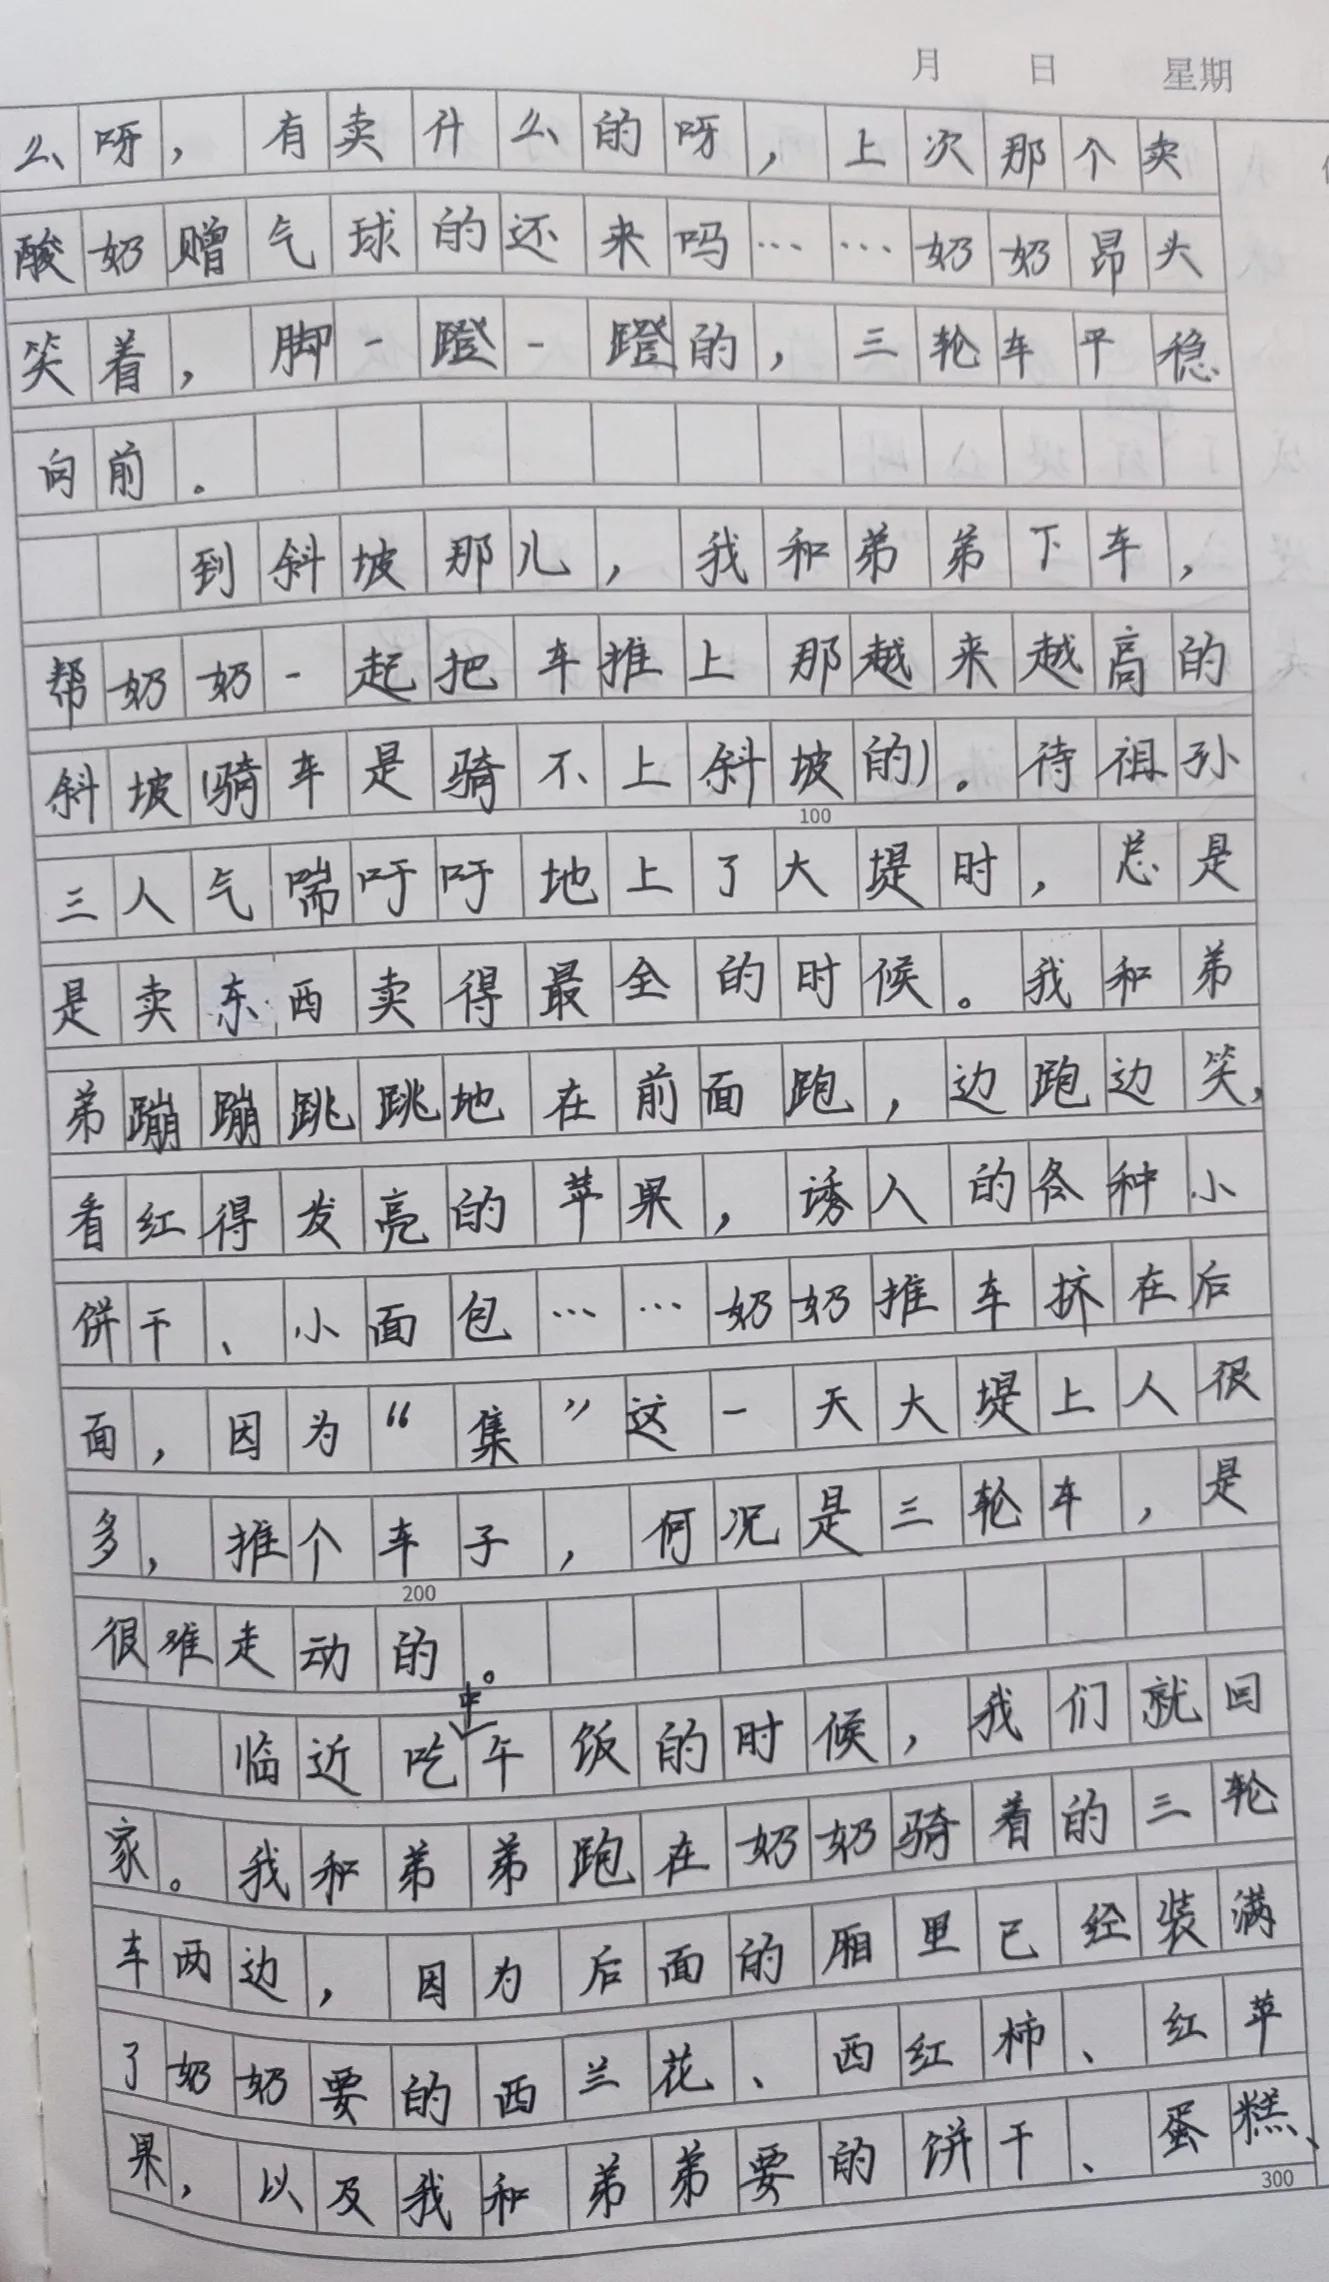 月 日 星期
么呀，有卖什么的呀，上次那个卖
酸奶赠气球的还来吗……奶奶昂头
笑着，脚一蹬一蹬的，三轮车平稳
向前。
到斜坡那儿，我和弟弟下车，
帮奶奶一起把车推上那越来越高的
斜坡(骑车是骑不上斜坡的)。待祖孙
三人气喘吁吁地上了大堤时，总是
是卖东西卖得最全的时候。我和弟
弟蹦蹦跳跳地在前面跑，边跑边笑，
看红得发亮的苹果，诱人的各种小
饼干、小面包……奶奶推车挤在后
面，因为“集”这一天大堤上人很
多，推个车子，何况是三轮车，是
很难走动的。
临近吃中午饭的时候，我们就回
家。我和弟弟跑在奶奶骑着的三轮
车两边，因为后面的厢里已经装满
了奶奶要的西兰花、西红柿、红苹
果，以及我和弟弟要的饼干、蛋糕、
100
200
300